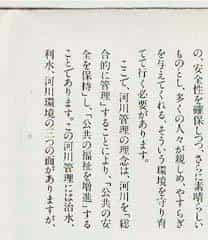 の、安全性を確保しつつ、さらに素晴らしい
ものとし、多くの人々が親しめ、やすらぎ
を与えてくれる、そういう環境を守り育
てて行く必要があります。
ここで、河川管理の理念は、河川を「総
合的に管理」することにより、「公共の安
全を保持」し、「公共の福祉を増進」する
ことであります。この河川管理には治水、
利水、河川環境の三つの面がありますが、